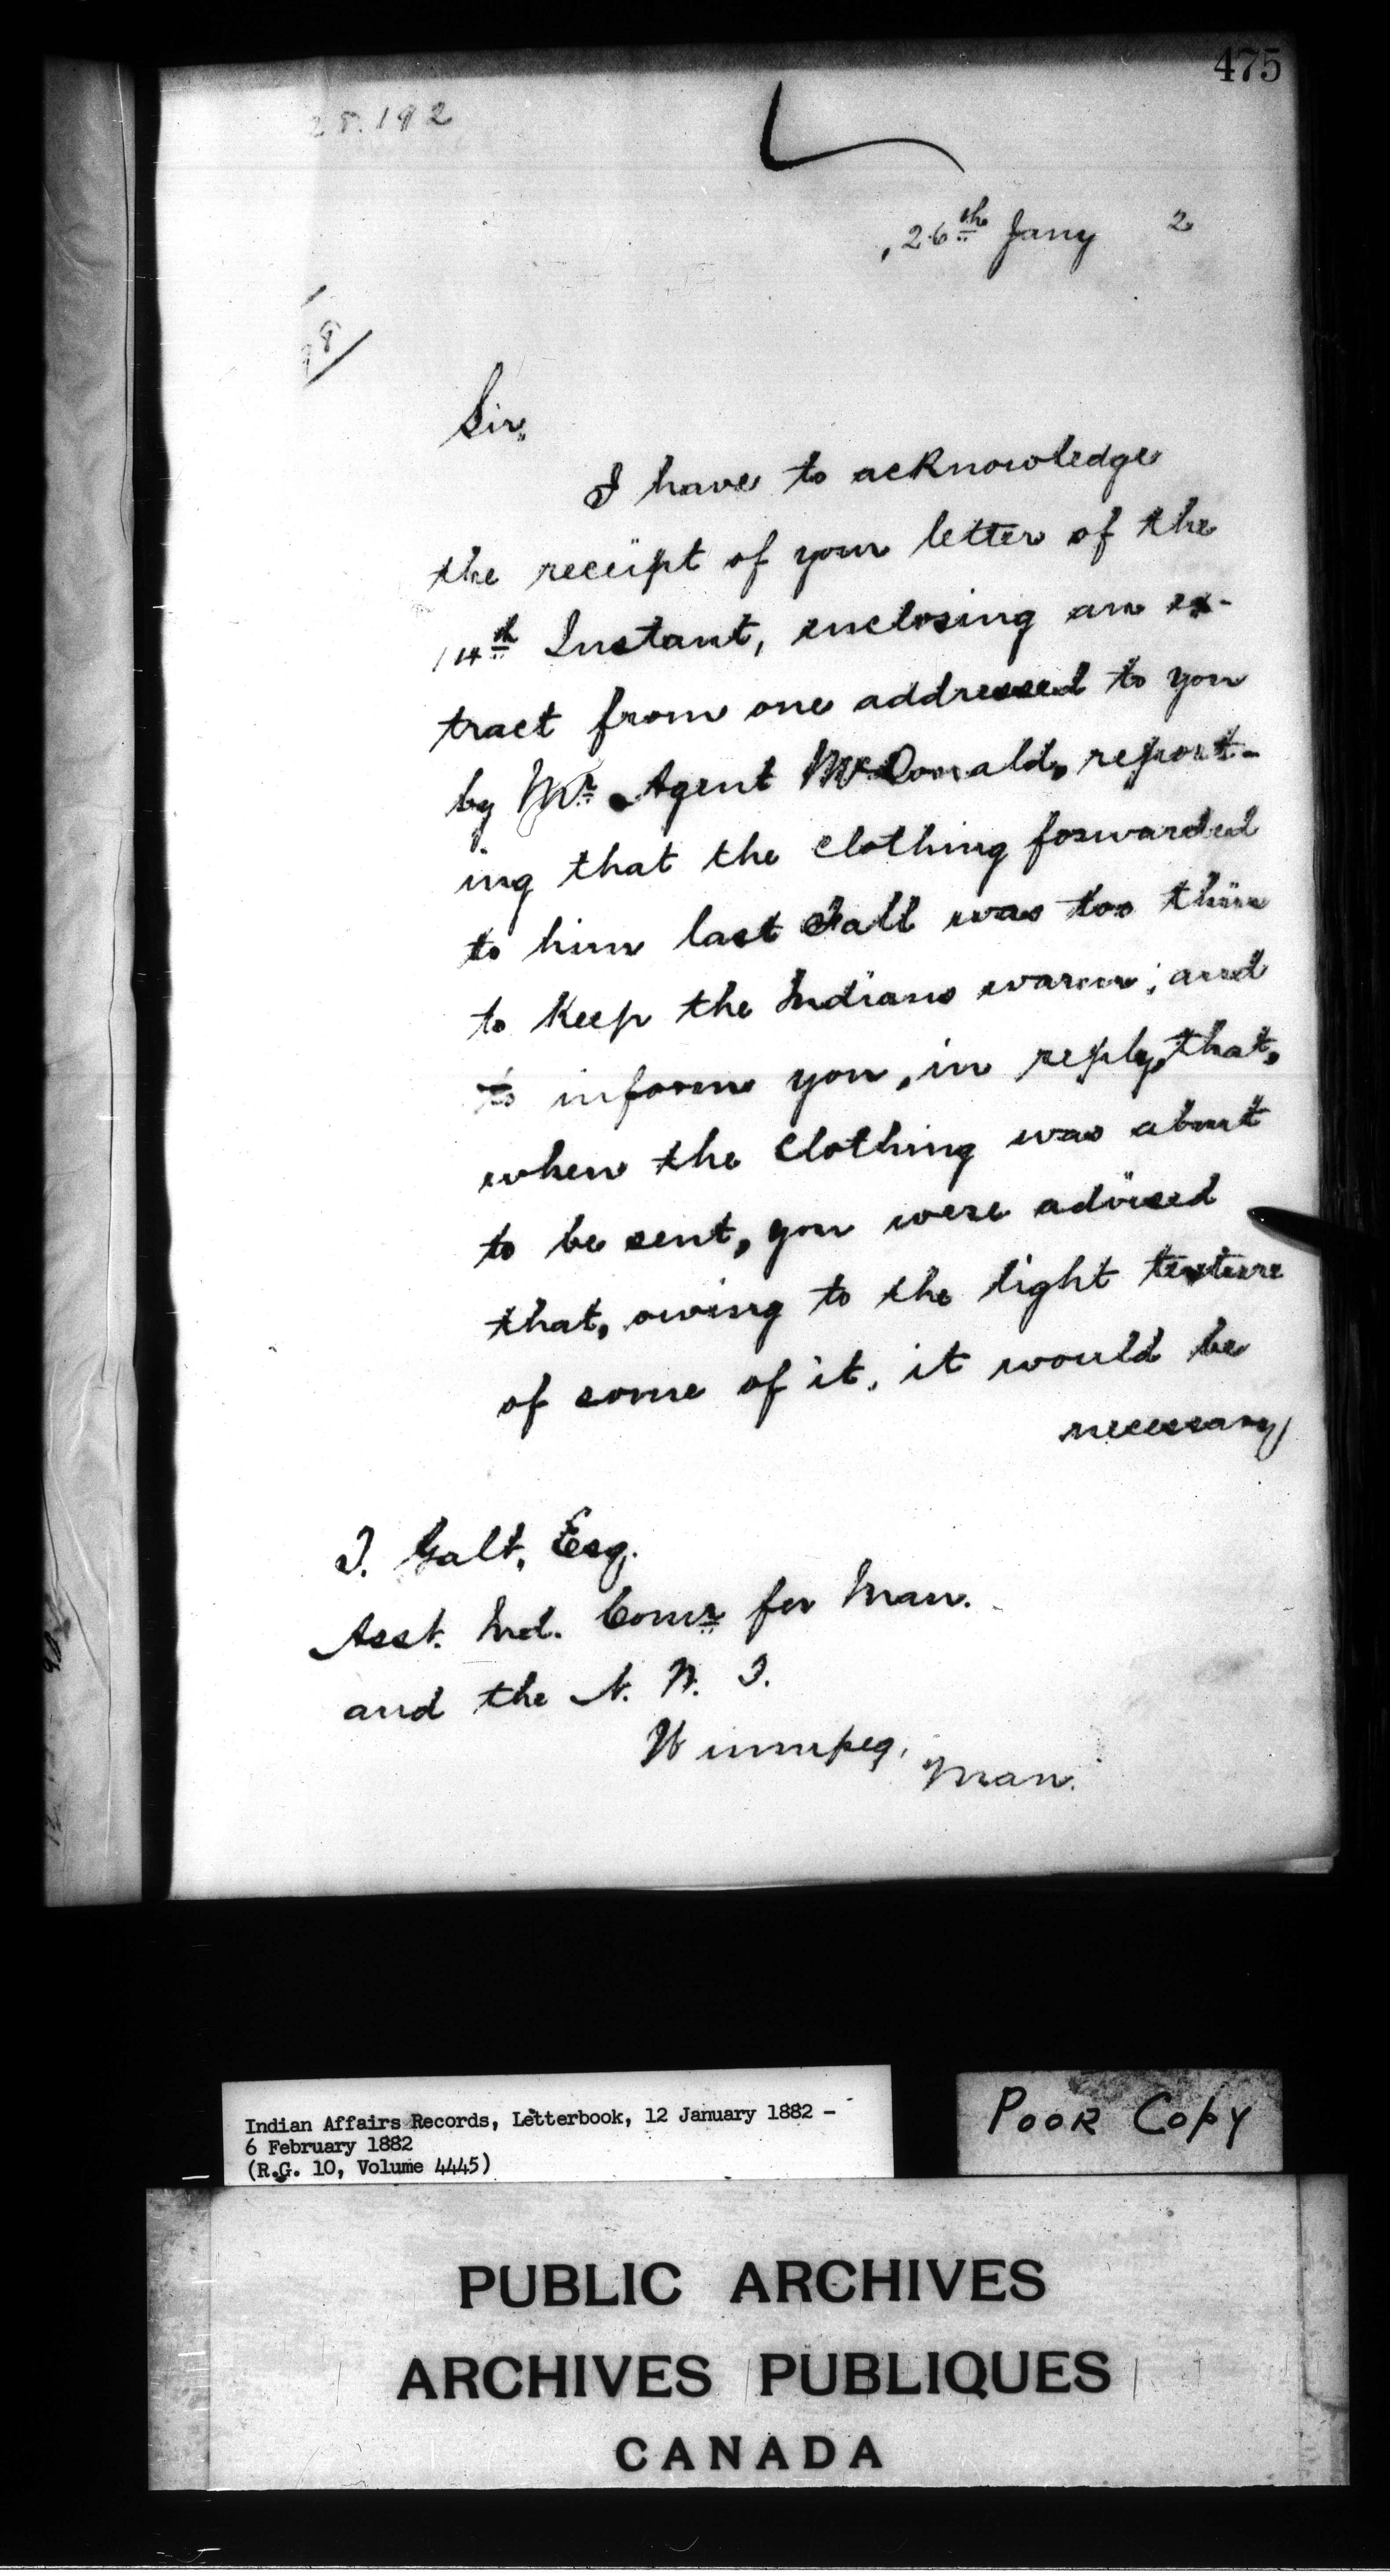 475
28.192
26th Jany 2
Sir,
I have to acknowledge
the receipt of your letter of the
14th Instant, enclosing an ex-
tract from one addressed to you
by Mr. Agent McDonald, report-
ing that the clothing forwarded
to him last Fall was too thin
to keep the Indians warm; and
to inform you, in reply, that,
when the clothing was about
to be sent, you were advised
that, owing to the light texture
of some of it, it would be
necessary
T. Galt, Esq.
Asst. Ind. Comr. for Man.
and the N. W. T.
Winnipeg,
Man.
Indian Affairs Records, Letterbook, 12 January 1882 -
6 February 1882
(R.G. 10, Volume 4445)
POOR COPY
PUBLIC ARCHIVES
ARCHIVES PUBLIQUES
CANADA